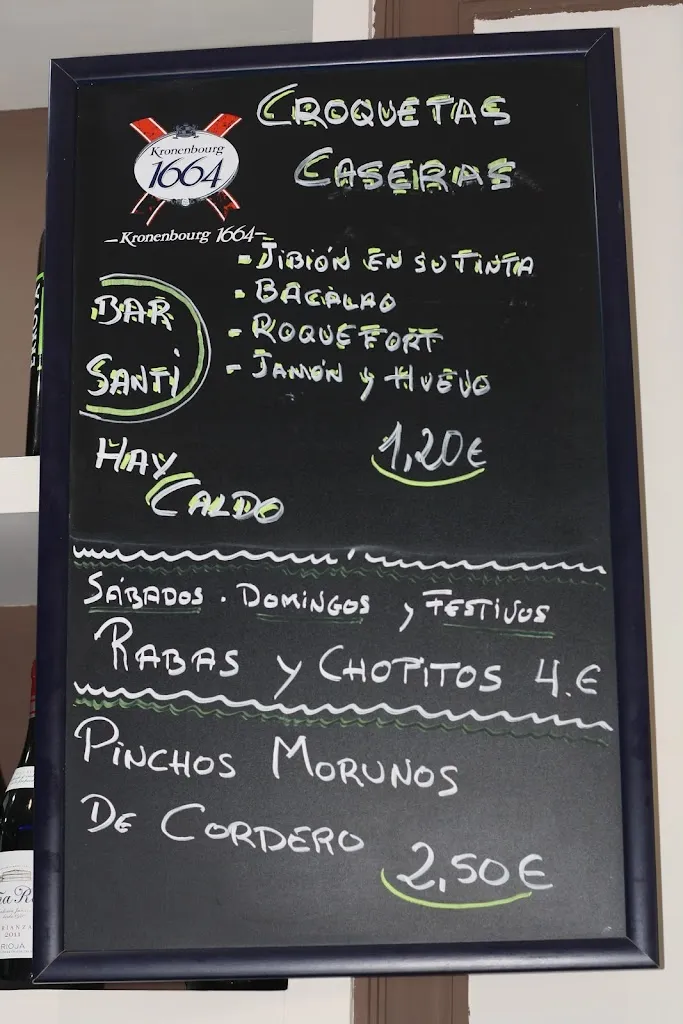 CROQUETAS
CASERAS
Kronenbourg
1664
-Kronenbourg 1664-
- JIBIÓN EN SU TINTA
- BACALAO
- ROQUEFORT
- JAMÓN y HUEVO
1,20€
BAR
SANTI
HAY
CALDO
SÁBADOS . DOMINGOS y FESTIVOS
RABAS y CHOPITOS 4.€
PINCHOS MORUNOS
DE CORDERO
2,50€
2011
RIOJA